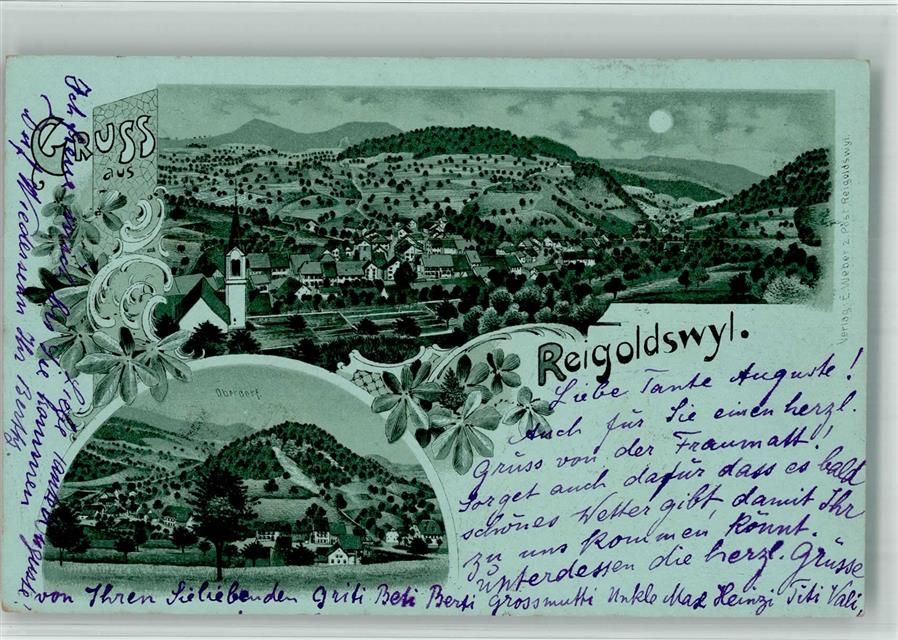 Gruss
aus
Reigoldswyl.
Oberdorf.
Verlag E. Weber z. Post Reigoldswyl.
Liebe Tante Auguste!
Auch für Sie einen herzl.
Grüss von der Fraumatt!
Sorget auch dafür dass es bald
schönes Wetter gibt, damit Ihr
zu uns kommen könnt.
Unterdessen die herzl. Grüsse
von Ihren Sieliebenden Griti Beti Berti Grossmutti Unkle Max Heinzi Titi Vali,
Ich freue mich bis Sie kommen liebe Tante Auguste!
Auf Wiedersehn Ihr